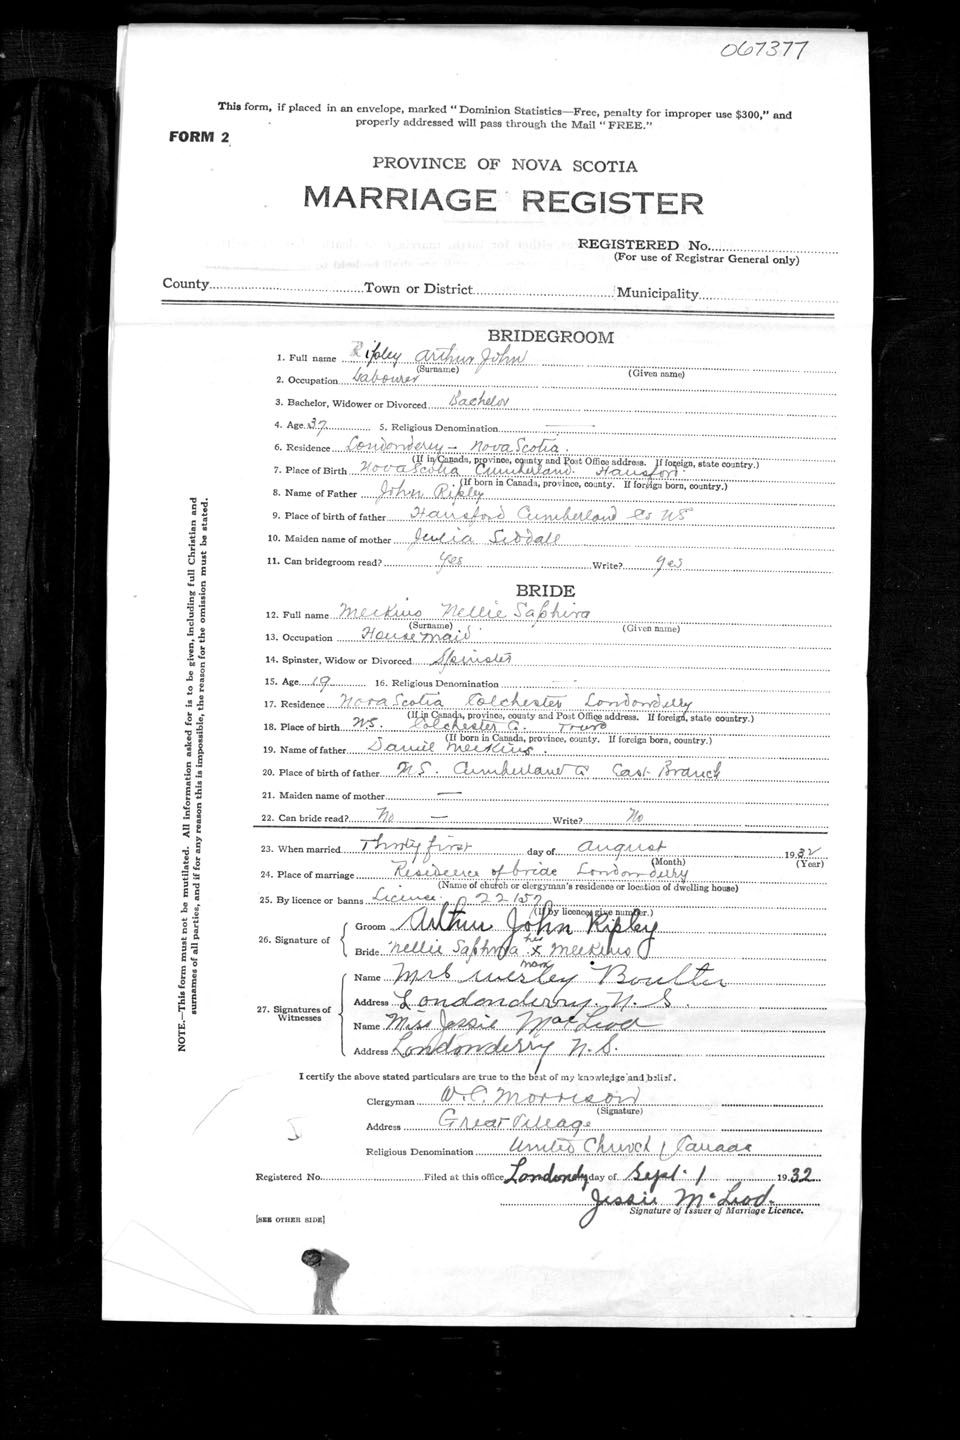 067377
This form, if placed in an envelope, marked "Dominion Statistics—Free, penalty for improper use $300," and
properly addressed will pass through the Mail "FREE."
FORM 2
PROVINCE OF NOVA SCOTIA
MARRIAGE REGISTER
REGISTERED No.
(For use of Registrar General only)
County Town or District Municipality
BRIDEGROOM
1. Full name Ripley Arthur John
(Surname) (Given name)
2. Occupation Labourer
3. Bachelor, Widower or Divorced Bachelor
4. Age 37 5. Religious Denomination —
6. Residence Londonderry – Nova Scotia
(If in Canada, province, county and Post Office address. If foreign, state country.)
7. Place of Birth Nova Scotia Cumberland Hansford
(If born in Canada, province, county. If foreign born, country.)
8. Name of Father John Ripley
9. Place of birth of father Hansford Cumberland Co NS
10. Maiden name of mother Julia Siddall
11. Can bridegroom read? Yes Write? yes
BRIDE
12. Full name Meekins Nellie Saphira
(Surname) (Given name)
13. Occupation Housemaid
14. Spinster, Widow or Divorced Spinster
15. Age 19 16. Religious Denomination —
17. Residence Nova Scotia Colchester Londonderry
(If in Canada, province, county and Post Office address. If foreign, state country.)
18. Place of birth NS. Colchester Co. Truro
(If born in Canada, province, county. If foreign born, country.)
19. Name of father Daniel Meekins.
20. Place of birth of father NS. Cumberland Co East Branch
21. Maiden name of mother —
22. Can bride read? No — Write? No
23. When married Thirty first day of August 1932
(Month) (Year)
24. Place of marriage Residence of bride Londonderry
(Name of church or clergyman's residence or location of dwelling house)
25. By licence or banns License 22157
(If by licence give number.)
26. Signature of Groom Arthur John Ripley
Bride Nellie Saphira her x mark Meekins
27. Signatures of Witnesses
Name Mrs Wesley Boulter
Address Londonderry. N. S.
Name Miss Jessie MacLeod
Address Londonderry N. S.
I certify the above stated particulars are true to the best of my knowledge and belief.
Clergyman W. P. Morrison
(Signature)
Address Great Village
Religious Denomination United Church of Canada
Registered No. Filed at this office Londondy day of Sept. 1 1932
Jessie McLeod.
Signature of Issuer of Marriage Licence.
[SEE OTHER SIDE]
NOTE.—This form must not be mutilated. All information asked for is to be given, including full Christian and
surnames of all parties, and if for any reason this is impossible, the reason for the omission must be stated.